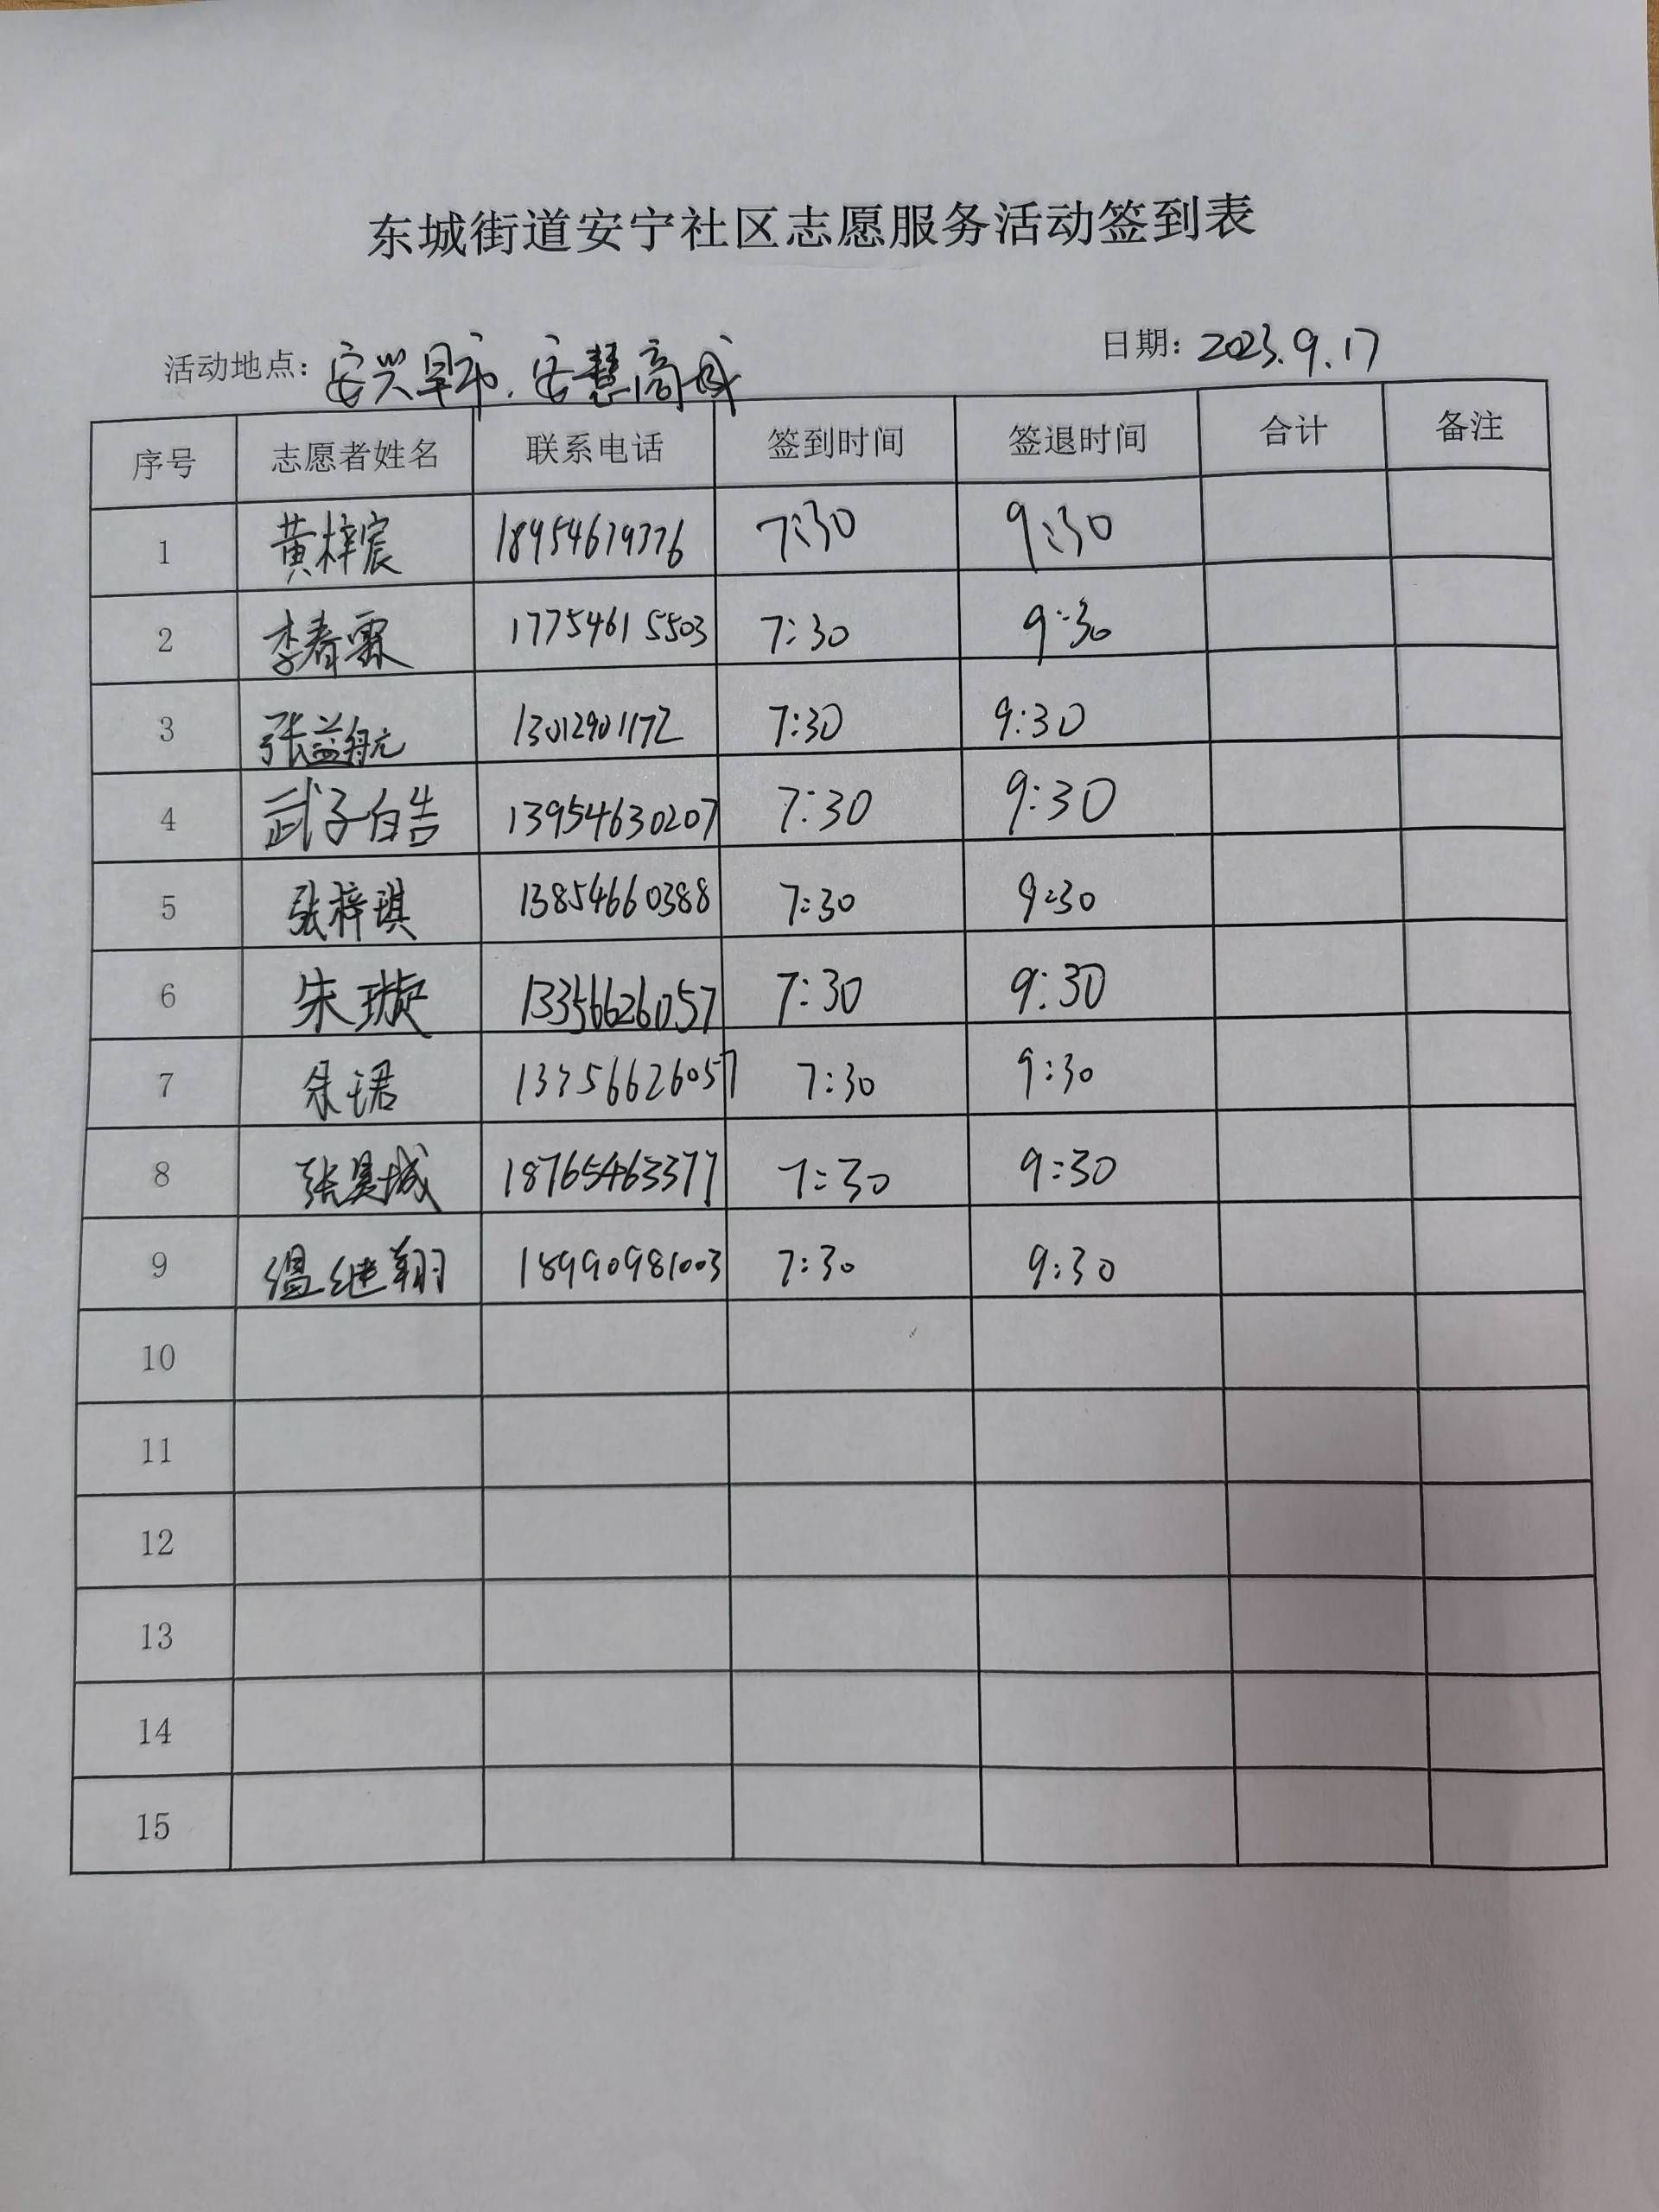 东城街道安宁社区志愿服务活动签到表
活动地点: 安兴早市、安慧商城 日期: 2023.9.17
序号 志愿者姓名 联系电话 签到时间 签退时间 合计 备注
1 黄梓宸 18954679376 7:30 9:30
2 李春霖 17754615503 7:30 9:30
3 张益航 13012901172 7:30 9:30
4 武子皓 13954630207 7:30 9:30
5 张梓琪 13854660388 7:30 9:30
6 朱璇 13356626057 7:30 9:30
7 朱珺 13356626057 7:30 9:30
8 张昊城 18765463377 7:30 9:30
9 温继翔 7:30 9:30
10
11
12
13
14
15